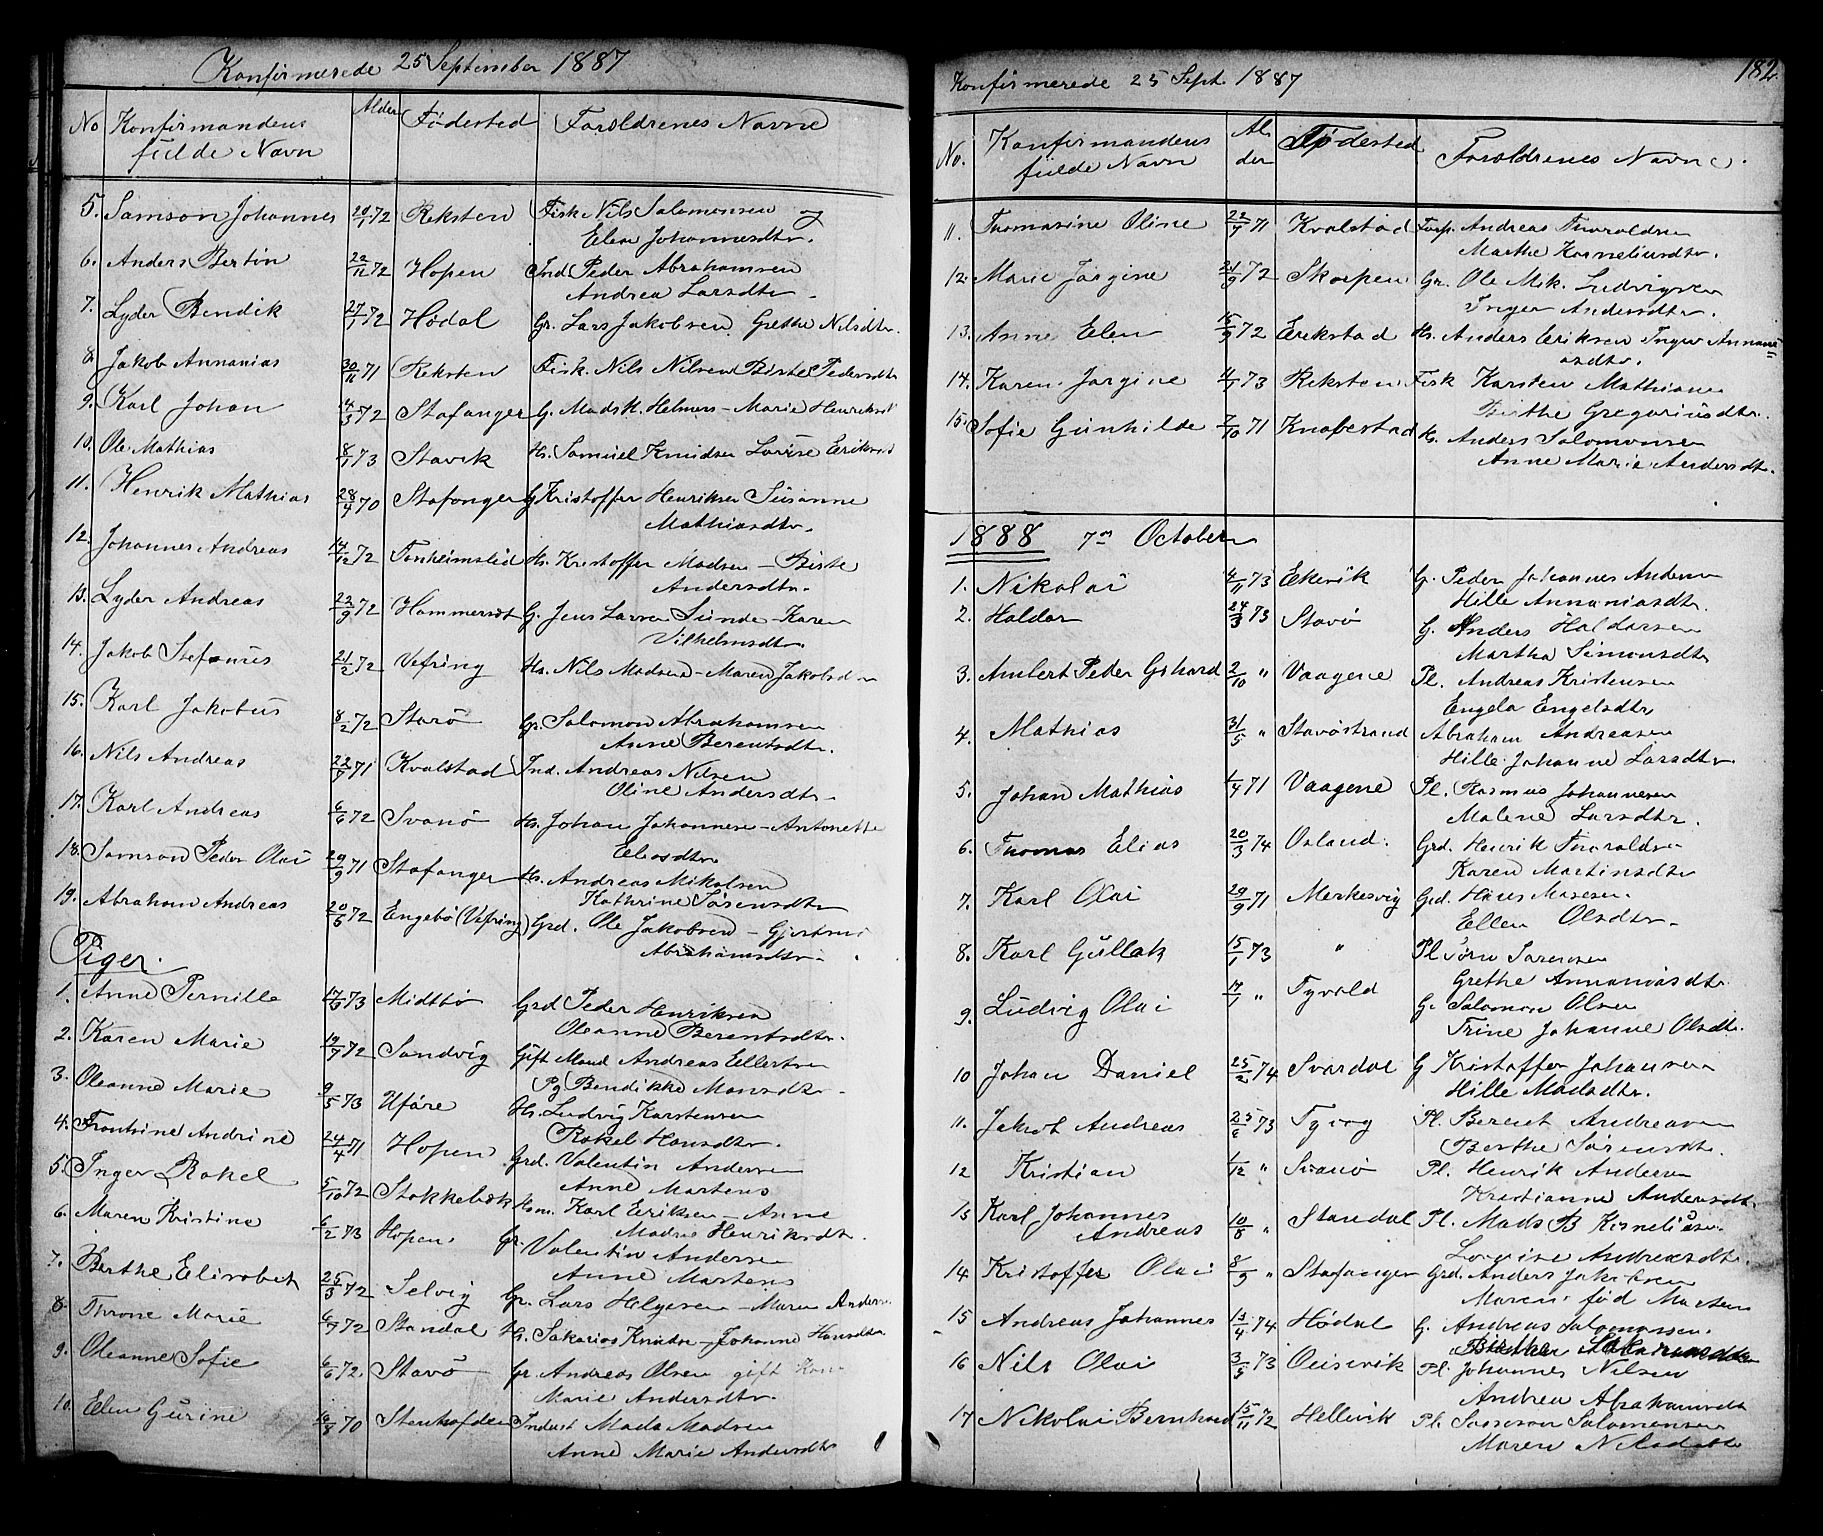 Konfirmerede 25 September 1887
No Konfirmandens fulde Navn Alder Fødested Foreldrenes Navne
5. Samson Johannes 20/1 72 Reksten Fisk. Nils Salomonsen
Elen Johannesdtr.
6. Anders Bertin 22/11 72 Hopen Ind. Peder Abrahamsen
Andrea Larsdtr.
7. Lyder Bendik 27/1 72 Hødal Gr. Lars Jakobsen Grethe Nilsdtr.
8. Jakob Annanias 30/11 71 Reksten Fisk. Nils Nilsen Birte Pedersdtr
9. Karl Johan 4/3 72 Stafanger G. Mads K. Helmers - Marie Henriksdt
10. Ole Mathias 8/1 73 Stavik Hs. Samuel Knudsen Lovise Eriksdt
11. Henrik Mathias 28/4 70 Stafanger G. Kristoffer Henriksen Susanne
Mathiasdtr.
12. Johannes Andreas 14/12 72 Tonheimslid Hs. Kristoffer Madsen - Birte
Andersdtr.
13. Lyder Andreas 23/9 72 Hammersdt G. Jens Larsen Sunde - Karen
Vilhelmsdtr.
14. Jakob Stefanus 21/2 72 Vefring Hs. Nils Madsen - Maren Jakobsd
15. Karl Jakobus 8/2 72 Stavø Gr. Salomon Abrahamsen
Anne Berentsdtr.
16. Nils Andreas 22/7 71 Kvalstad Ind. Andreas Nilsen
Oline Andersdtr
17. Karl Andreas 6/6 72 Svanø Hs. Johan Johannesen - Antonette
Eliasdtr
18. Samson Peder Olai 29/9 71 Stafanger Hs. Andreas Mikalsen
Kathrine Sørensdtr
19. Abraham Andreas 20/5 72 Engebø (Vefring) Grd. Ole Jakobsen - Gjertrud
Abrahamsdtr
Piger.
1. Anne Pernille 17/3 73 Midtbø Grd Peder Henriksen
Oleanne Berentsdtr.
2. Karen Marie 19/7 72 Sandvig Gift Mand Andreas Ellertsen
Pg Bendikke Monsdtr
3. Oleanne Marie 9/5 73 Uføre Hs. Ludvig Karstensen
Rakel Hansdtr.
4. Andrine 24/4 71 Hopen Grd. Valentin Andersen
Anne Martens
5. Inger Rakel 5/10 72 Stokkebæk Hsm. Karl Eriksen - Anne
Madrie Henriksdtr.
6. Maren Kristine 6/2 73 Hopen Gr. Valentin Andersen
Anne Martens
7. Berthe Elisabet 25/3 72 Selvig Gr. Lars Helgesen - Maren Anders
8. Throne Marie 6/7 72 Standal Hs. Sakarias Knudsen - Johanne Hansdtr
9. Oleanne Sofie 6/6 72 Stavø Gr. Andreas Olsen gift Kone
Marie Andersdtr.
10. Elen Gurine 16/8 70 Indust Mads Madsen
Anne Marie Andersdtr
Konfirmerede 25 Sept. 1887
182
No. Konfirmandens fulde Navn Alder Fødested Foreldrenes Navne.
11. Thomasine Oline 22/7 71 Kvalstad Forp. Andreas Thoraldsen
Marthe Korneliusdtr.
12. Marie Jørgine 21/9 72 Skorpen Gr. Ole Mik. Ludvigsen
Inger Andersdtr.
13. Anne Elen 15/9 72 Erikstad Hs. Anders Eriksen Inger Annani=
asdtr.
14. Karen Jørgine 4/1 73 Reksten Fisk Karsten Mathiasen
Birthe Gregoriusdtr.
15. Sofie Gunhilde 7/10 71 Knapstad H. Anders Salomonsen
Anne Marie Andersdtr.
1888 7de October
1. Nikolai 4/11 73 Eikevik G. Peder Johannes Andersen
Hille Annaniasdtr.
2. Haldor 24/3 73 Stavø G. Anders Haldorsen
Martha Simonsdtr
3. Ambert Peder Gehard 2/10 " Vaagene Pl. Andreas Kristensen
Engela Engelsdtr
4. Mathias 31/5 " Stavøstrand Abraham Andreasen
Hille Johanne Larsdtr
5. Johan Mathias 4/4 71 Vaagene Pl. Rasmus Johannesen
Malene Larsdtr.
6. Thomas Elias 20/3 74 Osland. Grd. Henrik Thoraldsen
Karen Martinsdtr
7. Karl Olai 29/9 71 Merkesvig Grd. Hans Masesen.
Ellen Olsdtr
8. Karl Gullak 15/1 73 " Pl Sørn Sørensen
Grethe Annaniasdtr
9. Ludvig Olai 17/1 " Tyvold G. Salomon Olsen
Trine Johanne Olsdtr.
10 Johan Daniel 25/2 74 Svardal G Kristoffer Johansen
Hille Madsdtr.
11. Jakob Andreas 25/6 73 Tyvog Pl. Berent Andreasen
Berthe Sørensdtr.
12 Kristian 1/12 " Svanø Pl. Henrik Andersen
Kristianne Andersdtr
13 Karl Johannes
Andreas 10/8 " Standal Pl. Mads B Korneliusen
Lovise Andreasdtr.
14 Kristoffer Olai 8/9 " Stafanger Grd. Anders Jakobsen
Maren fød Madsen
15 Andreas Johannes 13/4 74 Hødal G. Andreas Salomonsen.
16 Nils Olai 3/5 73 Oeisevik Pl Johannes Nilsen
Andrea Abrahamsdt
17 Nikolai Berntsen 15/11 72 Hellevik Pl. Samson Salomonsen
Maren Nilsdtr